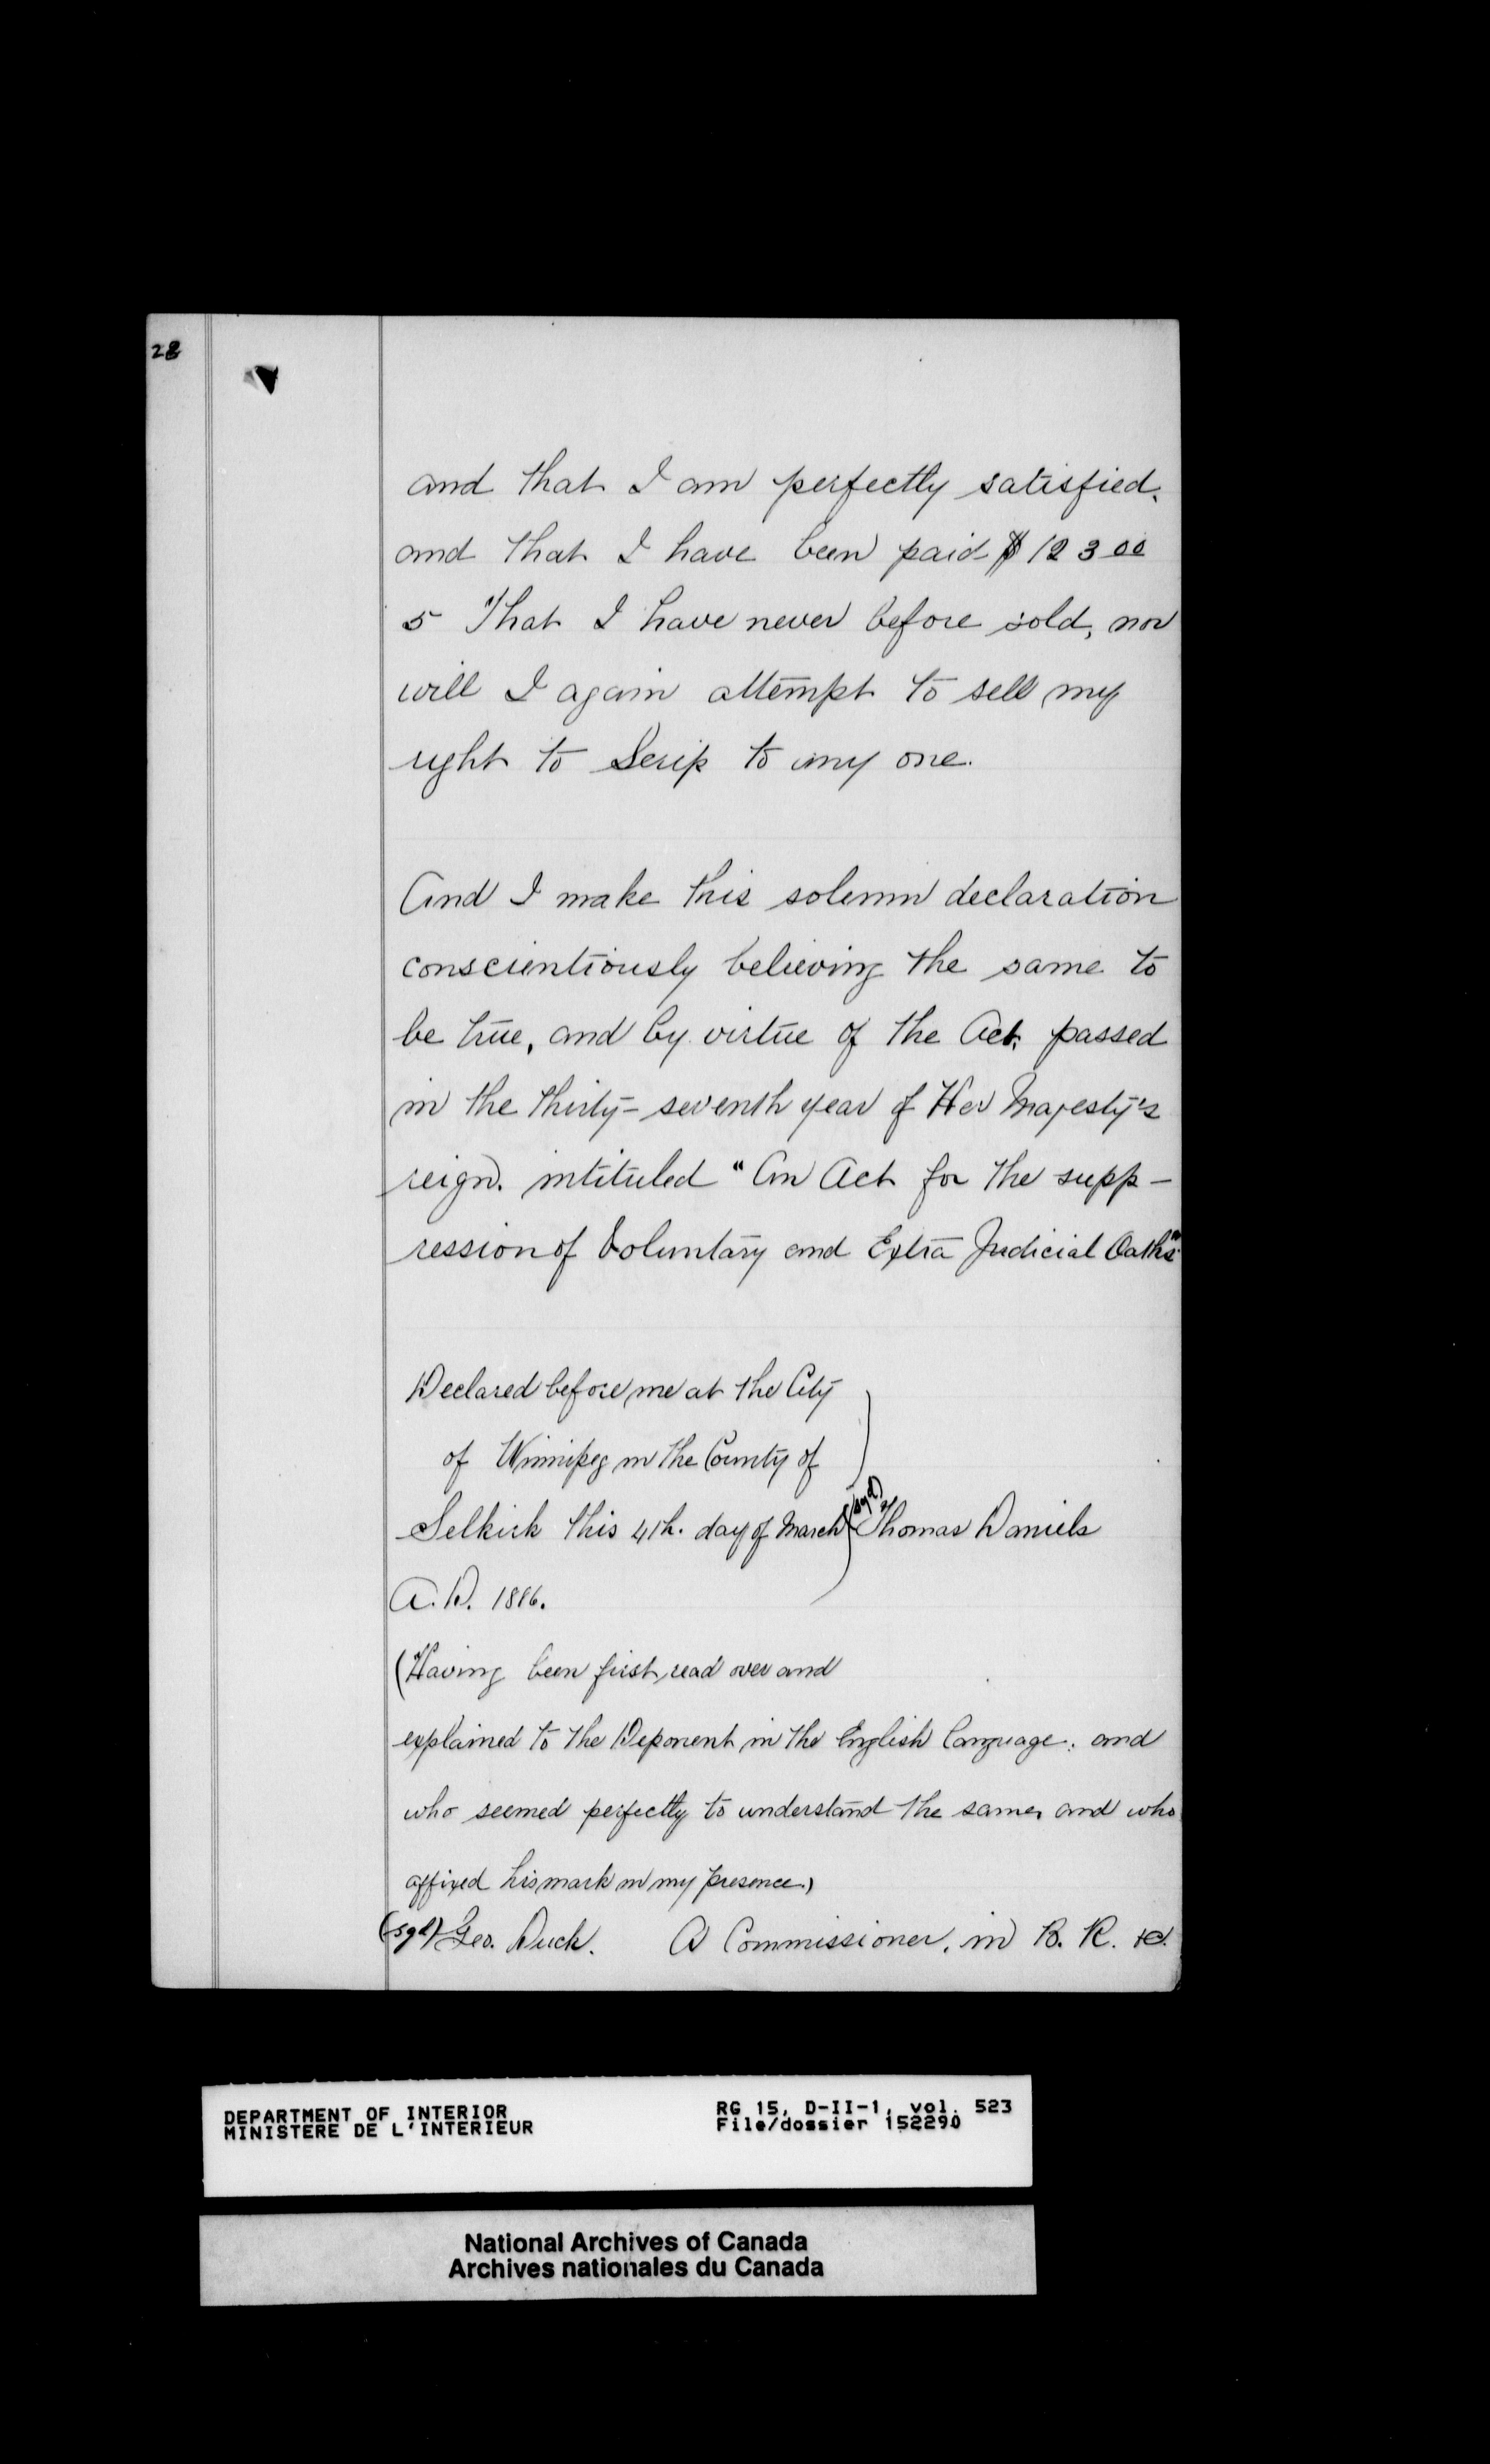 28
and that I am perfectly satisfied,
and that I have been paid $123 00
5 That I have never before sold, nor
will I again attempt to sell my
right to Scrip to any one.
And I make this solemn declaration
conscientiously believing the same to
be true, and by virtue of the Act, passed
in the thirty-seventh year of Her Majesty's
reign. intituled "An Act for the supp-
ression of Voluntary and Extra Judicial Oaths"
Declared before me at the City
of Winnipeg in the County of
Selkirk this 4th. day of March (sgd) Thomas Daniels
A.D. 1886.
(Having been first read over and
explained to the Deponent in the English language, and
who seemed perfectly to understand the same, and who
affixed his mark in my presence.)
(sgd) Geo. Duck. A Commissioner, in B. R. &c.
DEPARTMENT OF INTERIOR RG 15, D-II-1, vol. 523
MINISTERE DE L'INTERIEUR File/dossier 152290
National Archives of Canada
Archives nationales du Canada